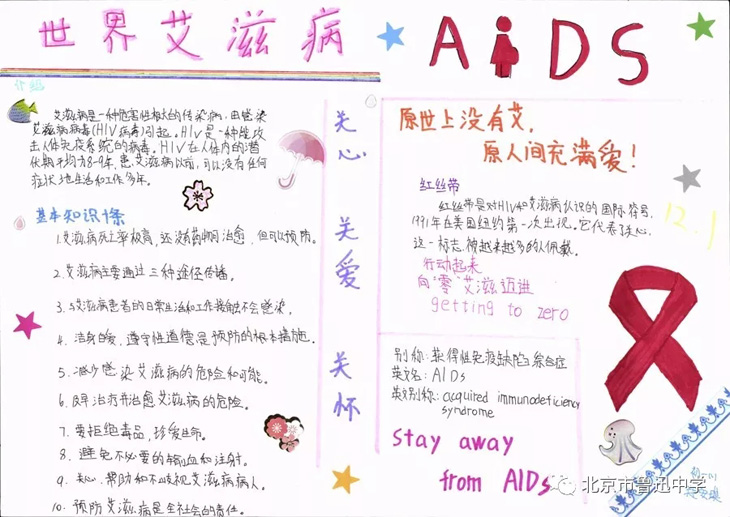 世界艾滋病
AIDS
介绍
艾滋病是一种危害性极大的传染病,由感染
艾滋病病毒(HIV病毒)引起。HIV是一种能攻
击人体免疫系统的病毒。HIV在人体内的潜
伏期平均为8-9年,患艾滋病以前,可以没有任何
症状地生活和工作多年。
基本知识10条
1.艾滋病死亡率极高,还没药物可治愈,但可以预防。
2.艾滋病主要通过三种途径传播。
3.与艾滋病患者的日常生活和工作接触不会感染。
4.洁身自爱、遵守性道德是预防的根本措施。
5.减少感染艾滋病的危险和可能。
6.及早治疗并治愈艾滋病的危险。
7.要拒绝毒品,珍爱生命。
8.避免不必要的输血和注射。
9.关心、帮助和不歧视艾滋病病人。
10.预防艾滋病是全社会的责任。
关心
关爱
关怀
原世上没有艾,
原人间充满爱!
红丝带
红丝带是对HIV和艾滋病认识的国际符号,
1991年在美国纽约第一次出现。它代表了关心,
这一标志被越来越多的人佩戴。
行动起来
向“零”艾滋迈进
getting to zero
12.1
别称:获得性免疫缺陷综合症
英文名:AIDs
英文别称:acquired immunodeficiency
syndrome
stay away
from AIDs
北京市鲁迅中学